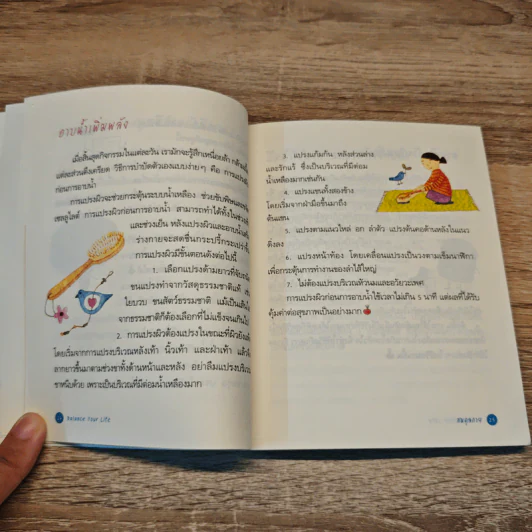 อาบน้ำเพิ่มพลัง
เมื่อสิ้นสุดกิจกรรมในแต่ละวัน เรามักจะรู้สึกเหนื่อยล้า
แต่ละส่วนตึงเครียด วิธีการบำบัดตัวเองแบบง่ายๆ คือ การแปรง
ก่อนการอาบน้ำ
การแปรงผิวจะช่วยกระตุ้นระบบน้ำเหลือง ช่วยขับพิษและ
เซลลูไลต์ การแปรงผิวก่อนการอาบน้ำ สามารถทำได้ทั้งใน
และช่วงเย็น หลังแปรงผิวและอาบน้ำ
ร่างกายจะสดชื่นกระปรี้กระเปร่า
การแปรงผิวมีขั้นตอนดังต่อไปนี้
1. เลือกแปรงด้ามยาวที่
ขนแปรงทำจากวัสดุธรรมชาติแท้
ใยบวบ ขนสัตว์ธรรมชาติ แม้เป็น
จากธรรมชาติก็ต้องเลือกที่ไม่แข็งจนเกินไป
2. การแปรงผิวต้องแปรงในขณะที่ผิวยัง
โดยเริ่มจากการแปรงบริเวณหลังเท้า นิ้วเท้า และฝ่าเท้า แล้ว
ลากยาวขึ้นมาตามช่วงขาทั้งด้านหน้าและหลัง อย่าลืมแปรงบริเวณ
ขาหนีบด้วย เพราะเป็นบริเวณที่มีต่อมน้ำเหลืองมาก
Balance Your Life
3. แปรงแก้มก้น หลังส่วนล่าง
และรักแร้ ซึ่งเป็นบริเวณที่มีต่อม
น้ำเหลืองมากเช่นกัน
4. แปรงแขนทั้งสองข้าง
โดยเริ่มจากฝ่ามือขึ้นมาถึง
ต้นแขน
5. แปรงตามแนวไหล่ อก ลำตัว แปรงต้นคอด้านหลังในแนว
ดิ่งลง
6. แปรงหน้าท้อง โดยเคลื่อนแปรงเป็นวงตามเข็มนาฬิกา
เพื่อกระตุ้นการทำงานของลำไส้ใหญ่
7. ไม่ต้องแปรงบริเวณหัวนมและอวัยวะเพศ
การแปรงผิวก่อนการอาบน้ำใช้เวลาไม่เกิน 5 นาที แต่ผลที่ได้รับ
คุ้มค่าต่อสุขภาพเป็นอย่างมาก
สมดุลกาย